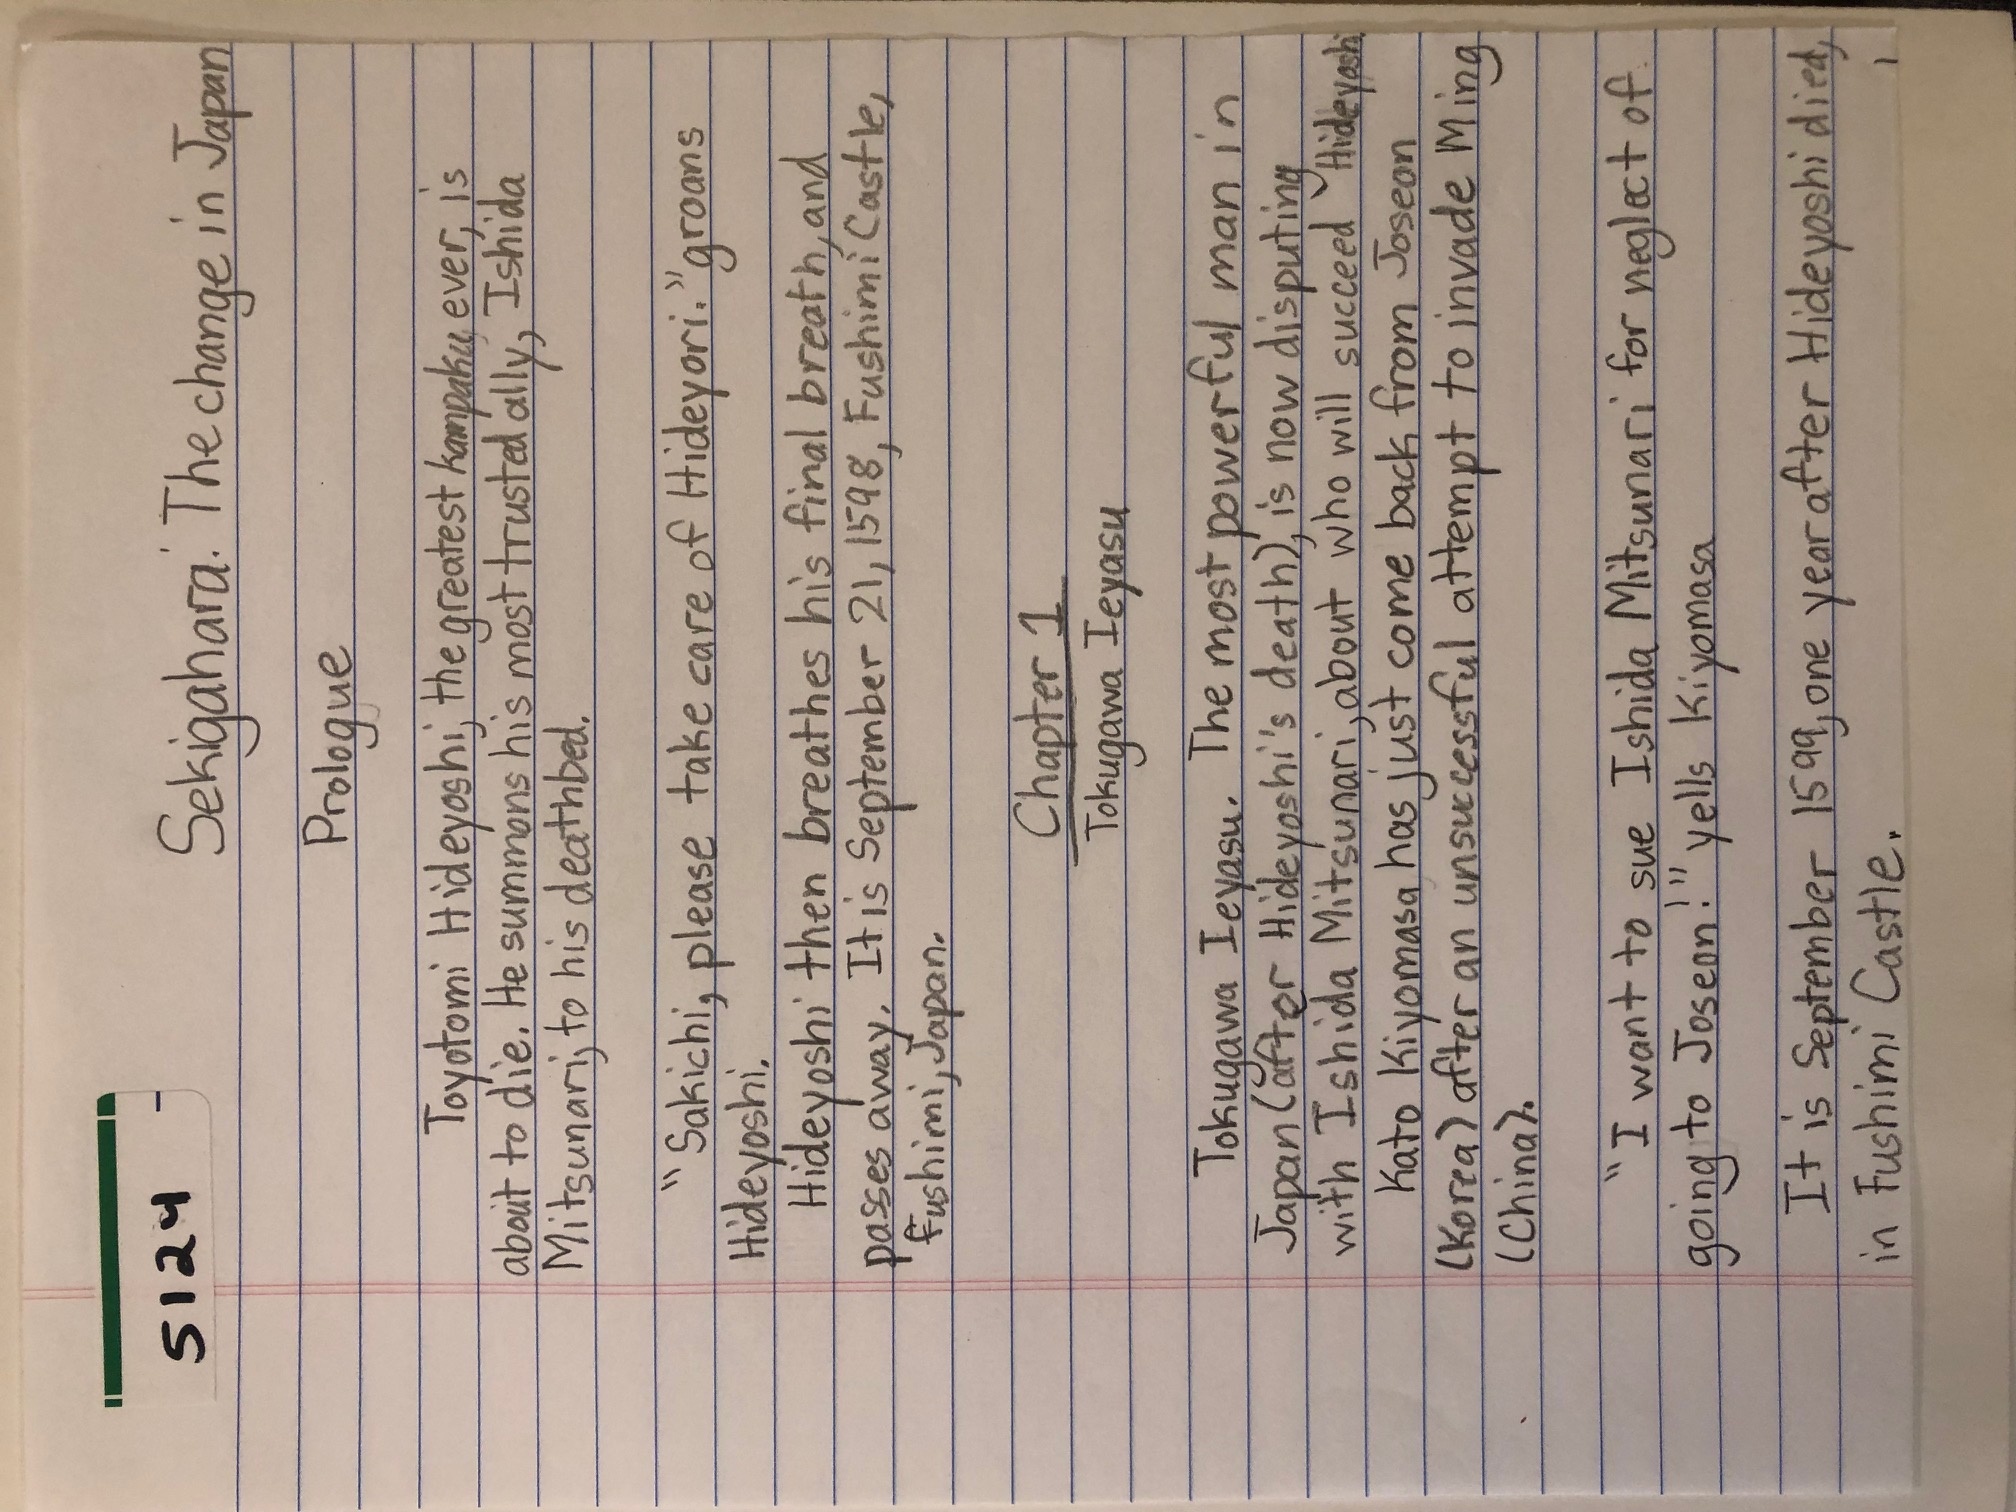 5124
Sekigahara: The change in Japan
Prologue
Toyotomi Hideyoshi, the greatest kampaku ever, is
about to die. He summons his most trusted ally, Ishida
Mitsunari, to his deathbed.
"Sakichi, please take care of Hideyori." groans
Hideyoshi.
Hideyoshi then breathes his final breath, and
passes away. It is September 21, 1598, Fushimi Castle,
Fushimi, Japan.
Chapter 1
Tokugawa Ieyasu
Tokugawa Ieyasu. The most powerful man in
Japan (after Hideyoshi's death), is now disputing
with Ishida Mitsunari, about who will succeed Hideyoshi.
Kato Kiyomasa has just come back from Joseon
(Korea) after an unsuccessful attempt to invade Ming
(China).
"I want to sue Ishida Mitsunari for neglect of
going to Joseon!" yells Kiyomasa
It is September 1599, one year after Hideyoshi died,
in Fushimi Castle.
1